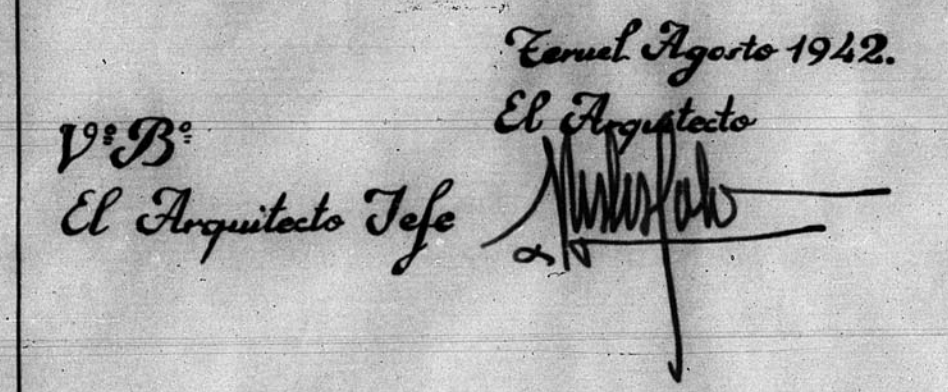 Teruel Agosto 1942.
El Arquitecto
Vº Bº
El Arquitecto Jefe